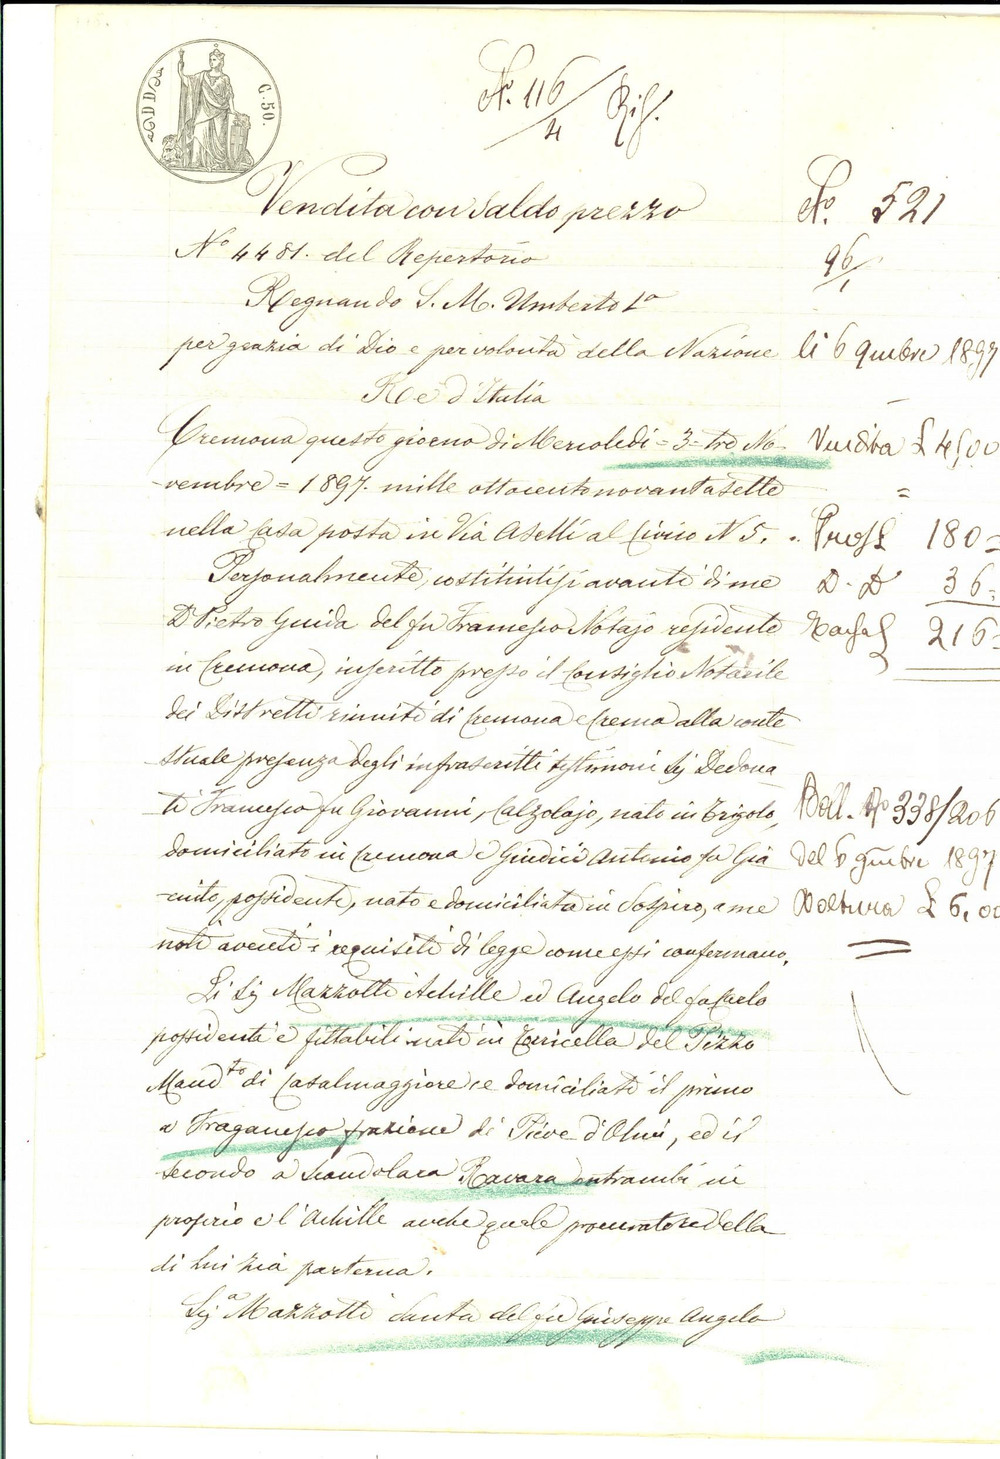 C. 50.
N. 116/4 Rif.
Vendita con Saldo prezzo
N. 521
N° 4481. del Repertorio
96/1
Regnando S. M. Umberto 1°
per grazia di Dio e per volontà della Nazione
li 6 9mbre 1897
Re d'Italia
Cremona questo giorno di Mercoledì = 3 = tre No-
Vendita £ 4500
vembre = 1897. mille ottocentonovantasette
=
nella Casa posta in Via Aselli al Civico N 5.
Prof£ 180=
Personalmente costituitisi avanti di me
D. D 36=
Dr Pietro Guida del fu Francesco Notajo residente
216=
in Cremona, inscritto presso il Consiglio Notarile
dei Distretti riuniti di Cremona e Crema alla conte
stuale presenza degli infrascritti testimoni Sig Dedona
ti Francesco fu Giovanni, Calzolajo, nato in Trigolo,
Boll. N° 338/206
domiciliato in Cremona e Giudici Antonio fu Gia
del 6 9mbre 1897
cinto, possidente, nato e domiciliato in Sospiro, a me
Voltura £ 6,00
noti aventi i requisiti di legge come essi confermano.
Li Sig Mazzotti Achille ed Angelo del fu Carlo
possidenti e fittabili nati in Torricella del Pizzo
Mandto di Casalmaggiore e domiciliati il primo
a Fraganesco frazione di Pieve d'Olmi, ed il
secondo a Scandolara Ravara entrambi in
proprio e l'Achille anche quale procuratore della
di lui zia paterna.
Siga Mazzotti Santa del fu Giuseppe Angelo